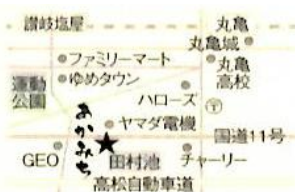 讃岐塩屋
丸亀
丸亀城
ファミリーマート
丸亀
高校
ゆめタウン
運動
公園
ハローズ
あかみち
ヤマダ電機
国道11号
GEO
田村池
チャーリー
高松自動車道